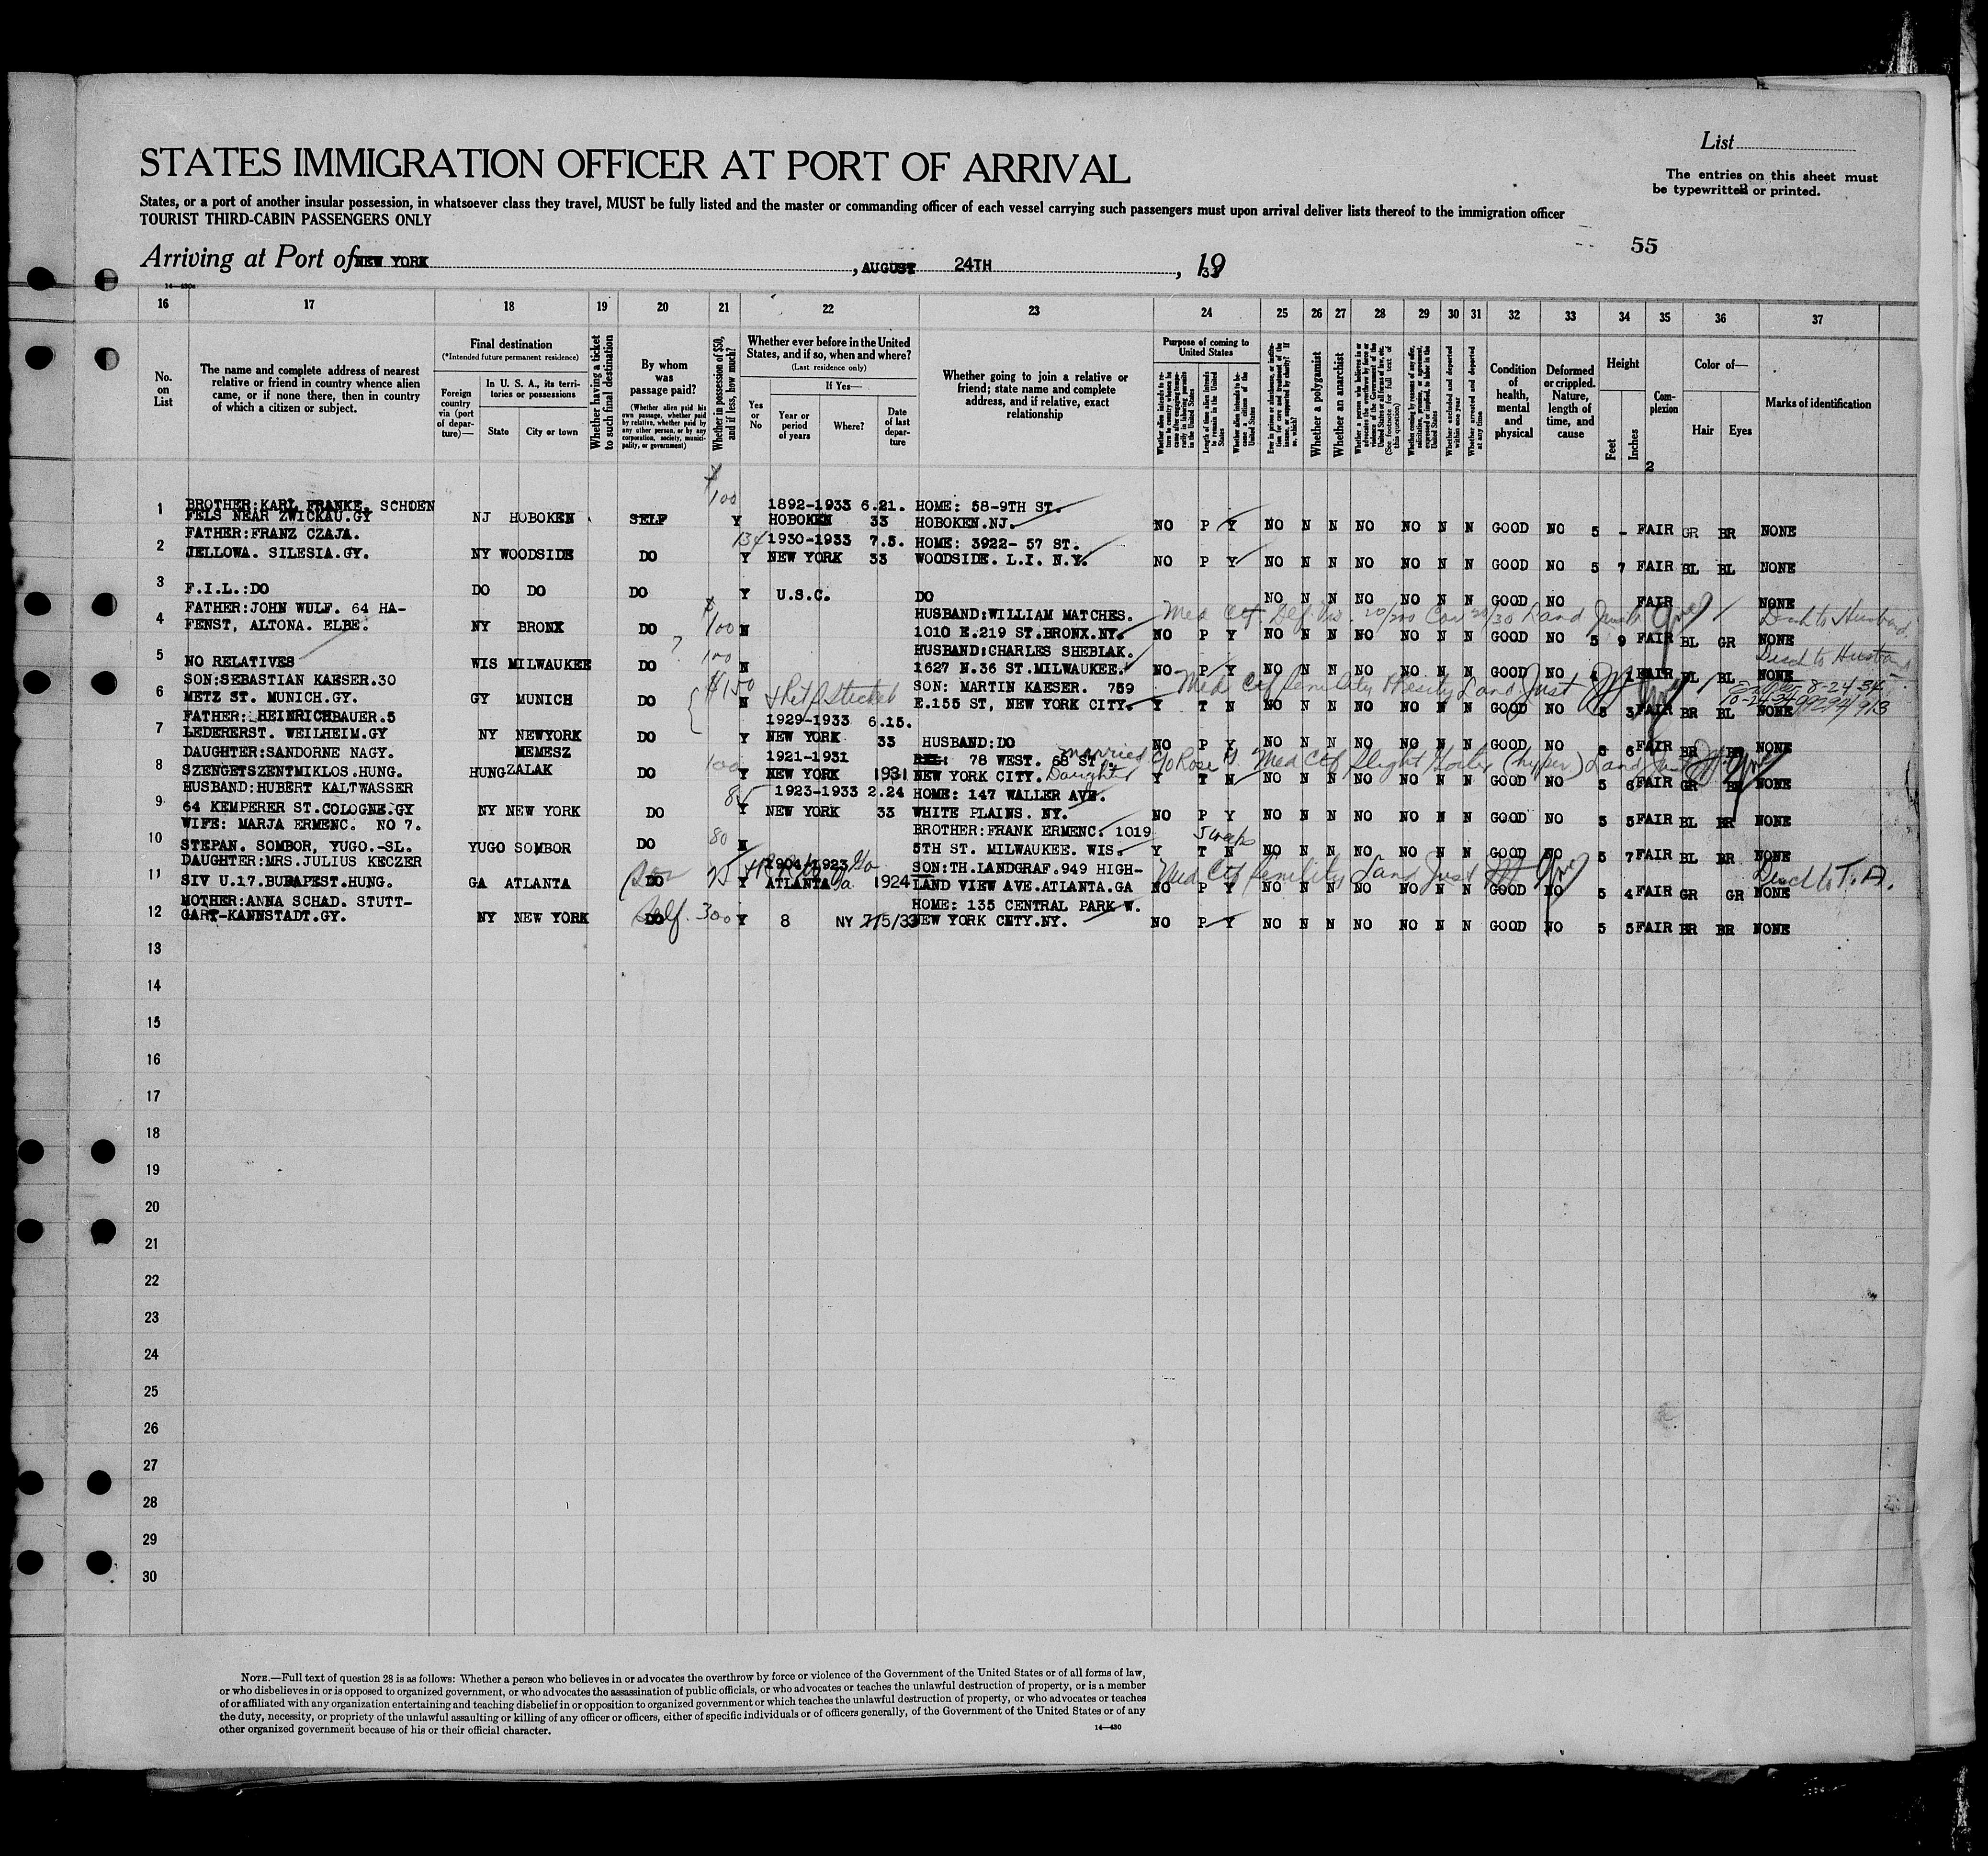 List
STATES IMMIGRATION OFFICER AT PORT OF ARRIVAL
The entries on this sheet must
be typewritten or printed.
States, or a port of another insular possession, in whatsoever class they travel, MUST be fully listed and the master or commanding officer of each vessel carrying such passengers must upon arrival deliver lists thereof to the immigration officer
TOURIST THIRD-CABIN PASSENGERS ONLY
55
Arriving at Port of NEW YORK, AUGUST 24TH, 19 33
14—430a
16 17 18 19 20 21 22 23 24 25 26 27 28 29 30 31 32 33 34 35 36 37
No. on List
The name and complete address of nearest relative or friend in country whence alien came, or if none there, then in country of which a citizen or subject.
Final destination
(*Intended future permanent residence)
Foreign country via (port of departure)—
In U. S. A., its territories or possessions
State City or town
Whether having a ticket to such final destination
By whom was passage paid?
(Whether alien paid his own passage, whether paid by relative, whether paid by any other person, or by any corporation, society, municipality, or government)
Whether in possession of $50, and if less, how much?
Whether ever before in the United States, and if so, when and where?
(Last residence only)
Yes or No
If Yes—
Year or period of years
Where?
Date of last departure
Whether going to join a relative or friend; state name and complete address, and if relative, exact relationship
Purpose of coming to United States
Length of time alien intends to remain in the United States
Whether alien intends to become a citizen of the United States
Whether a polygamist
Whether an anarchist
Whether excluded and deported within one year
Whether arrested and deported at any time
Condition of health, mental and physical
Deformed or crippled. Nature, length of time, and cause
Height
Feet Inches
Complexion
Color of—
Hair Eyes
Marks of identification
2
1 BROTHER:KARL FRANKE. SCHOEN
FELS NEAR ZWICKAU.GY NJ HOBOKEN SELF 100 Y 1892-1933 6.21. HOBOKEN 33 HOME: 58-9TH ST. HOBOKEN.NJ. NO P Y NO N N NO NO N N GOOD NO 5 - FAIR GR BR NONE
2 FATHER:FRANZ CZAJA.
JELLOWA. SILESIA.GY. NY WOODSIDE DO 134 Y 1930-1933 7.5. NEW YORK 33 HOME: 3922- 57 ST. WOODSIDE. L.I. N.Y. NO P Y NO N N NO NO N N GOOD NO 5 7 FAIR BL BL NONE
3 F.I.L.:DO DO DO DO Y U.S.C. DO NO N N NO NO N N GOOD NO FAIR NONE
4 FATHER:JOHN WULF. 64 HA-
FENST, ALTONA. ELBE. NY BRONX DO 100 N HUSBAND:WILLIAM MATCHES. 1010 E.219 ST.BRONX.NY. NO P Y NO N N NO NO N N GOOD NO 5 9 FAIR BL GR NONE
Med Ctf. Def. Vis. 20/200 Cor 20/30 Disch to Husband
5 NO RELATIVES WIS MILWAUKEE DO ? 100 N HUSBAND:CHARLES SHEBIAK. 1627 N.36 ST.MILWAUKEE. NO P Y NO N N NO NO N N GOOD NO FAIR BL BL NONE
Disch to Husband
6 SON:SEBASTIAN KAESER.30
METZ ST. MUNICH.GY. GY MUNICH DO $150 N SON: MARTIN KAESER. 759 E.155 ST, NEW YORK CITY. Y T N NO N N NO NO N N GOOD NO 5 3 FAIR BR BL NONE
Med Ctf Senility Obesity 8-24 34
7 FATHER: HEINRICHBAUER.5
LEDERERST. WEILHEIM.GY NY NEWYORK DO Y 1929-1933 6.15. NEW YORK 33 HUSBAND:DO NO P Y NO N N NO NO N N GOOD NO 5 6 FAIR BR BR NONE
8 DAUGHTER:SANDORNE NAGY.
SZENGETSZENTMIKLOS.HUNG. HUNG NEMESZ ZALAK DO 100 Y 1921-1931 NEW YORK 1931 78 WEST. 68 ST. NEW YORK CITY. married Daughter c/o Rose Y T N NO N N NO NO N N GOOD NO 5 6 FAIR GR BR NONE
Med Ctf Slight Goiter (hyper)
9 HUSBAND:HUBERT KALTWASSER
64 KEMPERER ST.COLOGNE.GY NY NEW YORK DO 85 Y 1923-1933 2.24 NEW YORK 33 HOME: 147 WALLER AVE. WHITE PLAINS. NY. NO P Y NO N N NO NO N N GOOD NO 5 5 FAIR BL BR NONE
10 WIFE: MARJA ERMENC. NO 7.
STEPAN. SOMBOR, YUGO.-SL. YUGO SOMBOR DO 80 N BROTHER:FRANK ERMENC. 1019 5TH ST. MILWAUKEE. WIS. Y T N NO N N NO NO N N GOOD NO 5 7 FAIR BL BR NONE
11 DAUGHTER:MRS.JULIUS KECZER
SIV U.17.BUDAPEST.HUNG. GA ATLANTA DO Son 25 Y 1904-1923 ATLANTA Ga 1924 SON:TH.LANDGRAF.949 HIGH-LAND VIEW AVE.ATLANTA.GA NO P Y NO N N NO NO N N GOOD NO 5 4 FAIR GR GR NONE
Med Ctf Senility Disch to T.A.
12 MOTHER:ANNA SCHAD. STUTT-
GART-KANNSTADT.GY. NY NEW YORK DO Self. 300 Y 8 NY 7/5/33 HOME: 135 CENTRAL PARK W. NEW YORK CNTY.NY. NO P Y NO N N NO NO N N GOOD NO 5 5 FAIR BR BR NONE
13
14
15
16
17
18
19
20
21
22
23
24
25
26
27
28
29
30
NOTE.—Full text of question 28 is as follows: Whether a person who believes in or advocates the overthrow by force or violence of the Government of the United States or of all forms of law,
or who disbelieves in or is opposed to organized government, or who advocates the assassination of public officials, or who advocates or teaches the unlawful destruction of property, or is a member
of or affiliated with any organization entertaining and teaching disbelief in or opposition to organized government or which teaches the unlawful destruction of property, or who advocates or teaches
the duty, necessity, or propriety of the unlawful assaulting or killing of any officer or officers, either of specific individuals or of officers generally, of the Government of the United States or of any
other organized government because of his or their official character.
14—430